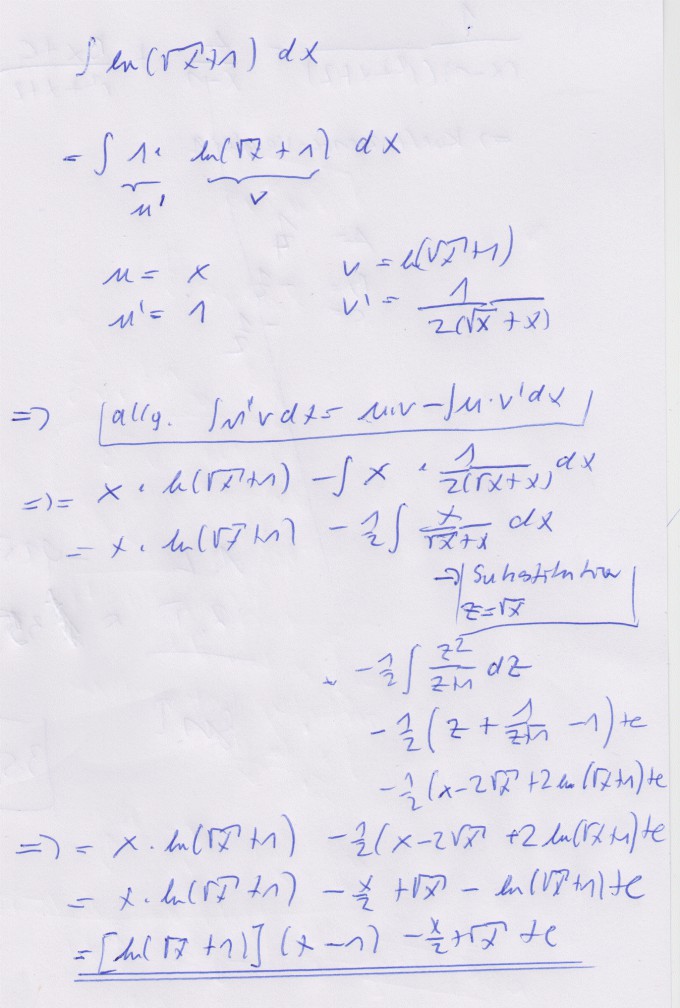 ∫ ln(√x+1) dx
= ∫ 1 · ln(√x + 1) dx
u' v
u = x v = ln(√x+1)
u' = 1 v' = 1/(2(√x + x))
=> allg. ∫u'v dx = u·v - ∫u·v' dx
=> = x · ln(√x+1) - ∫ x · 1/(2(√x+x)) dx
= x · ln(√x+1) - 1/2 ∫ x/(√x+x) dx
-> Substitution
z=√x
- 1/2 ∫ z²/(z+1) dz
- 1/2 (z + 1/(z+1) - 1) + c
- 1/2 (x - 2√x + 2 ln(√x+1) + c
=> = x · ln(√x+1) - 1/2 (x - 2√x + 2 ln(√x+1) + c
= x · ln(√x+1) - x/2 + √x - ln(√x+1) + c
= [ln(√x+1)] (x-1) - x/2 + √x + c